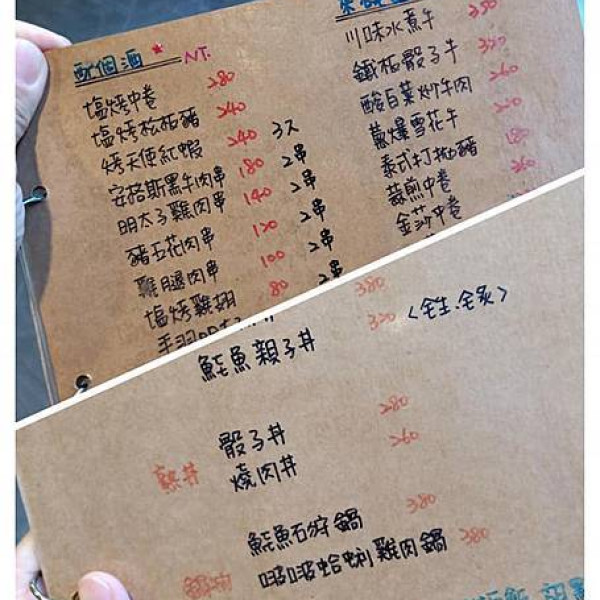 配個酒 NT.
塩烤中卷 280
塩烤松板豬 240
烤天使紅蝦 240 3入
安格斯黑牛肉串 180 2串
明太子雞肉串 140 2串
豬五花肉串 120 2串
雞腿肉串 100 2串
塩烤雞翅 80 2串
川味水煮牛 350
鐵板骰子牛 320
酸白菜炒牛肉 260
蔥爆雪花牛 220
泰式打拋豬 180
蒜煎中卷 260
金莎中卷
380
鮭魚親子丼 320 <全生、全炙>
骰子丼 280
熟丼 燒肉丼 260
鮭魚石狩鍋 380
啵啵蛤蜊雞肉鍋 380